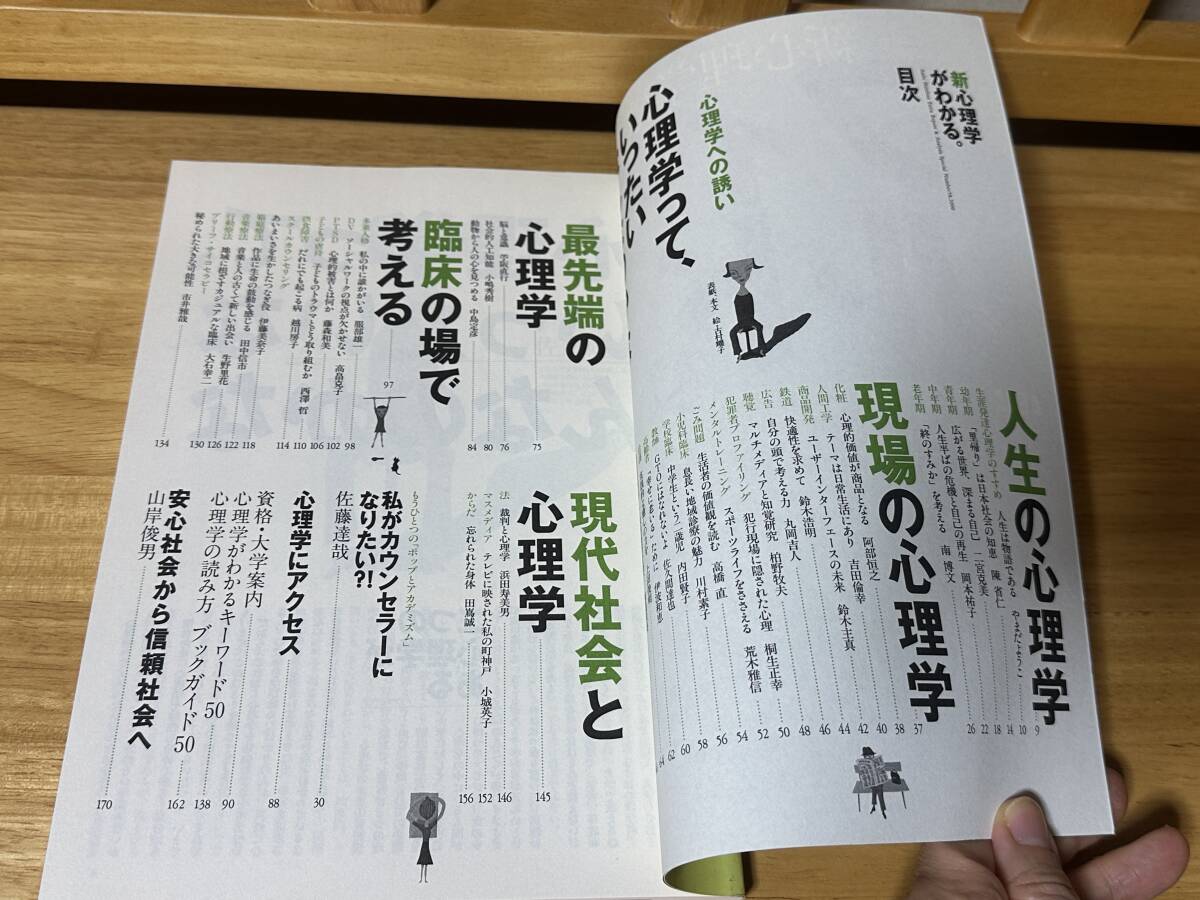 新心理学
がわかる。
目次
心理学への誘い
心理学って、
いったい
表紙、本文 絵 古村燿子
人生の心理学 9
生涯発達心理学のすすめ 人生は物語である やまだようこ 10
幼年期 「里帰り」は日本社会の知恵 陳 省仁 14
青年期 広がる世界、深まる自己 二宮克美 18
中年期 人生半ばの危機と自己の再生 岡本祐子 22
老年期 「終のすみか」を考える 南 博文 26
現場の心理学 37
化粧 心理的価値が商品となる 阿部恒之 38
人間工学 テーマは日常生活にあり 吉田倫幸 40
商品開発 ユーザーインターフェースの未来 鈴木圭真 42
鉄道 快適性を求めて 鈴木浩明 44
広告 自分の頭で考える力 丸岡吉人 46
聴覚 マルチメディアと知覚研究 柏野牧夫 48
犯罪者プロファイリング 犯行現場に隠された心理 桐生正幸 50
メンタルトレーニング スポーツライフをささえる 荒木雅信 52
ごみ問題 生活者の価値観を読む 高橋 直 54
小児科臨床 息長い地域診療の魅力 川村素子 56
学校臨床 中学生という二歳児 内田賢子 58
教師 GTOにはなれないよ 佐久間達也 60
62
64
最先端の
心理学 75
脳と意識 苧阪直行 76
社会的人工知能 小嶋秀樹 80
動物から人の心を見つめる 中島定彦 84
臨床の場で
考える 97
多重人格 私の中に誰かがいる 服部雄一 98
DV ソーシャルワークの視点が欠かせない 高畠克子 102
PTSD 心理的被害とは何か 藤森和美 106
子どもの虐待 子どものトラウマとどう取り組むか 西澤 哲 110
摂食障害 だれにでも起こる病 越川房子 114
スクールカウンセリング
あいまいさを生かしたつなぎ役 伊藤美奈子 118
箱庭療法 作品に生命の鼓動を感じる 田中信市 122
音楽療法 音楽と人の古くて新しい出会い 生野里花 126
行動療法 地域に根ざすカジュアルな臨床 大石幸二 130
ブリーフ・サイコセラピー
秘められた大きな可能性 市井雅哉 134
現代社会と
心理学 145
法 裁判と心理学 浜田寿美男 146
マスメディア テレビに映された私の町神戸 小城英子 152
からだ 忘れられた身体 田嶌誠一 156
もうひとつの「ポップとアカデミズム」
私がカウンセラーに
なりたい?!
佐藤達哉 30
心理学にアクセス
資格・大学案内 88
心理学がわかるキーワード50 90
心理学の読み方 ブックガイド50 138
安心社会から信頼社会へ 162
山岸俊男 170